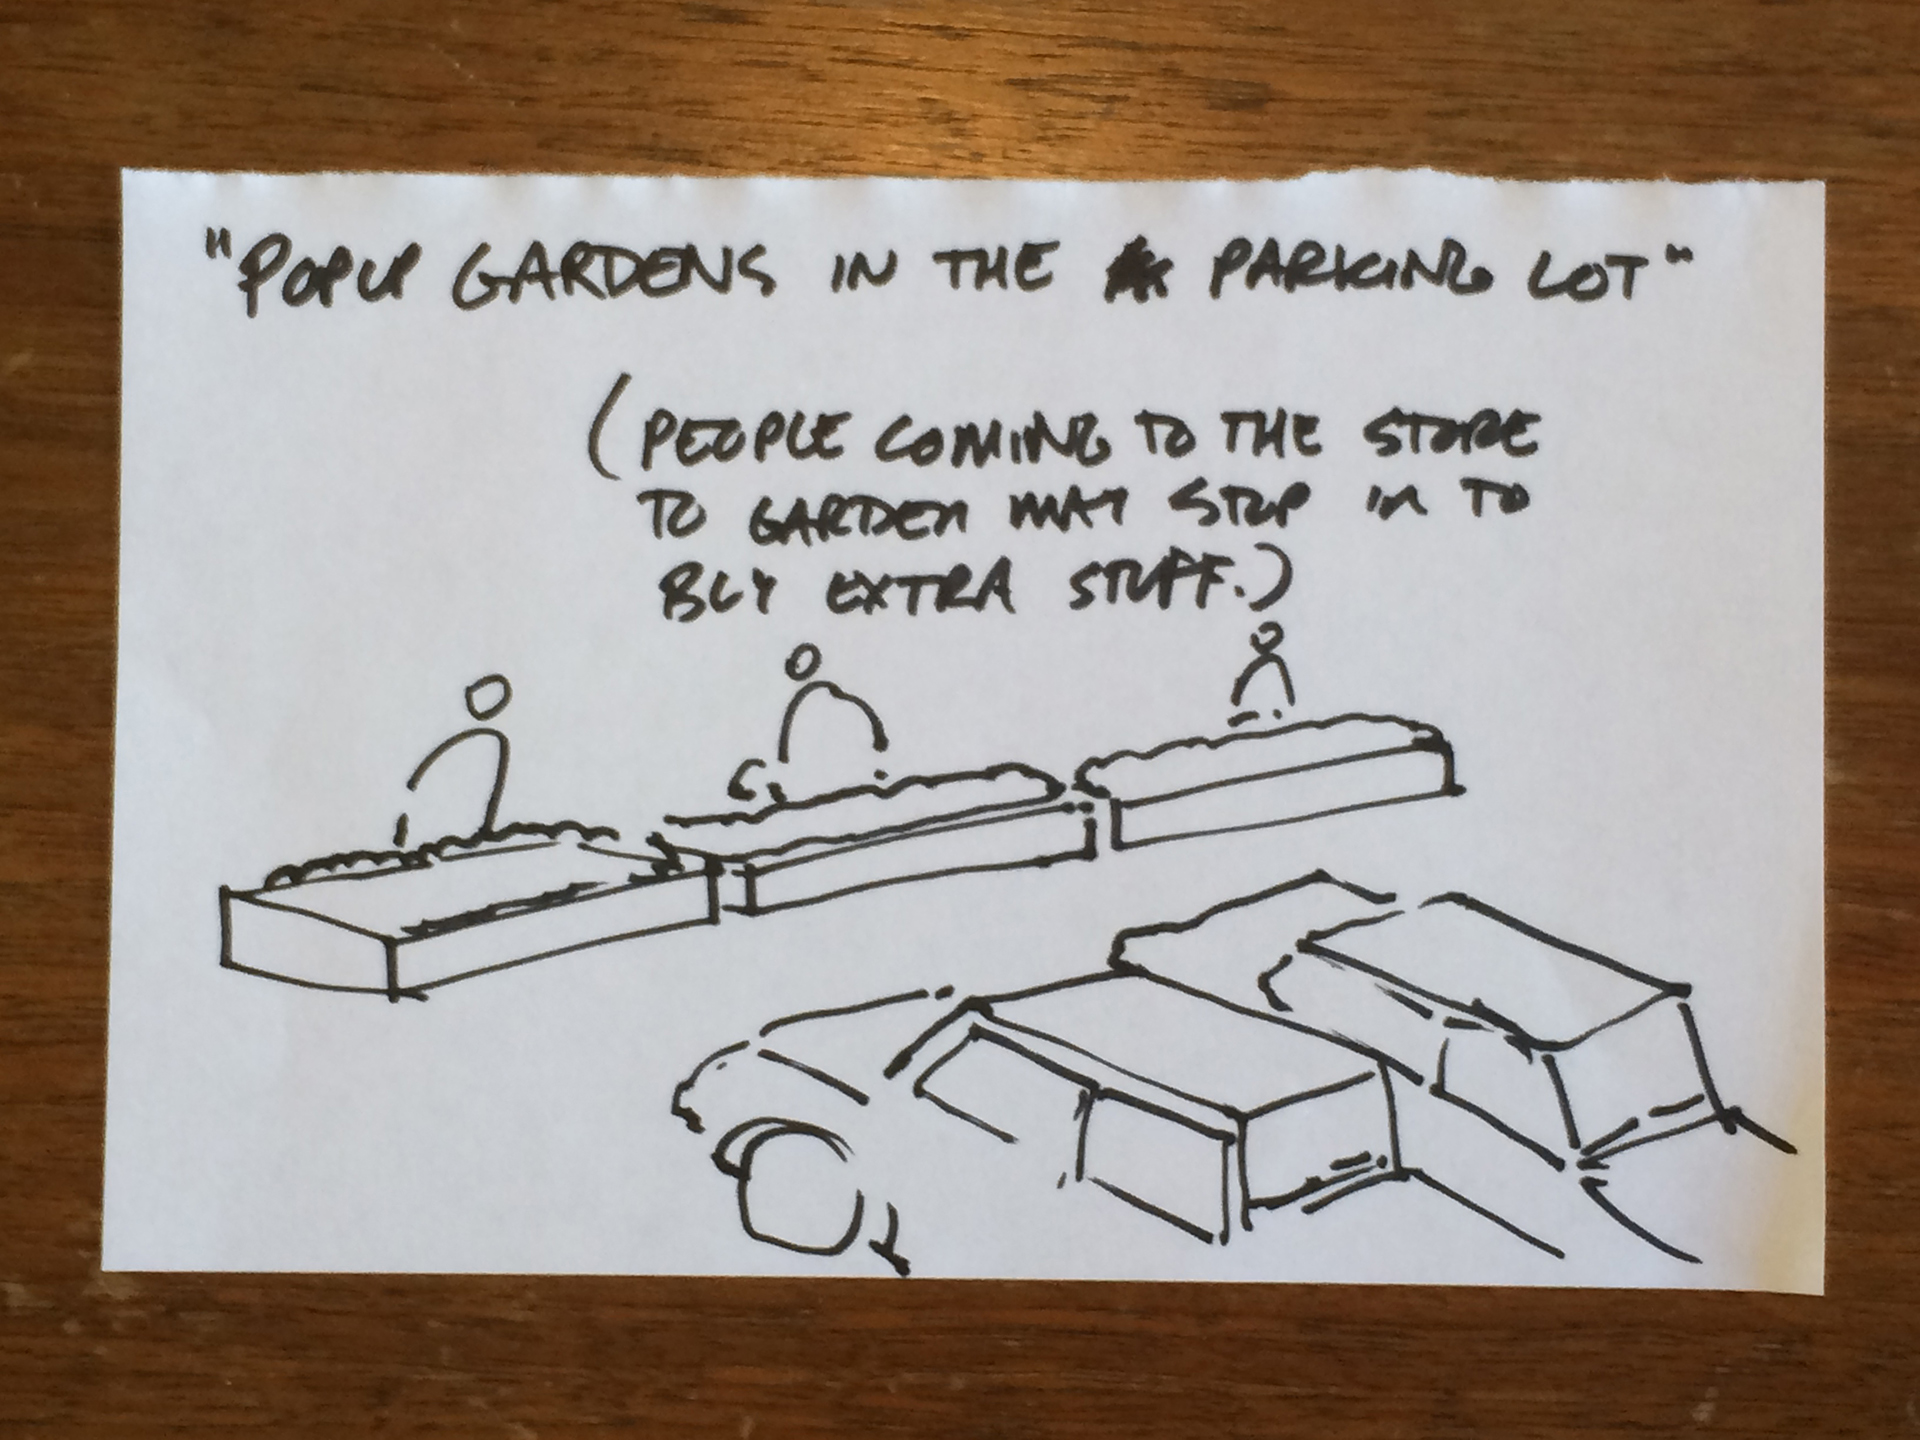 "POPUP GARDENS IN THE PARKING LOT"
(PEOPLE COMING TO THE STORE
TO GARDEN MAY STOP IN TO
BUY EXTRA STUFF.)